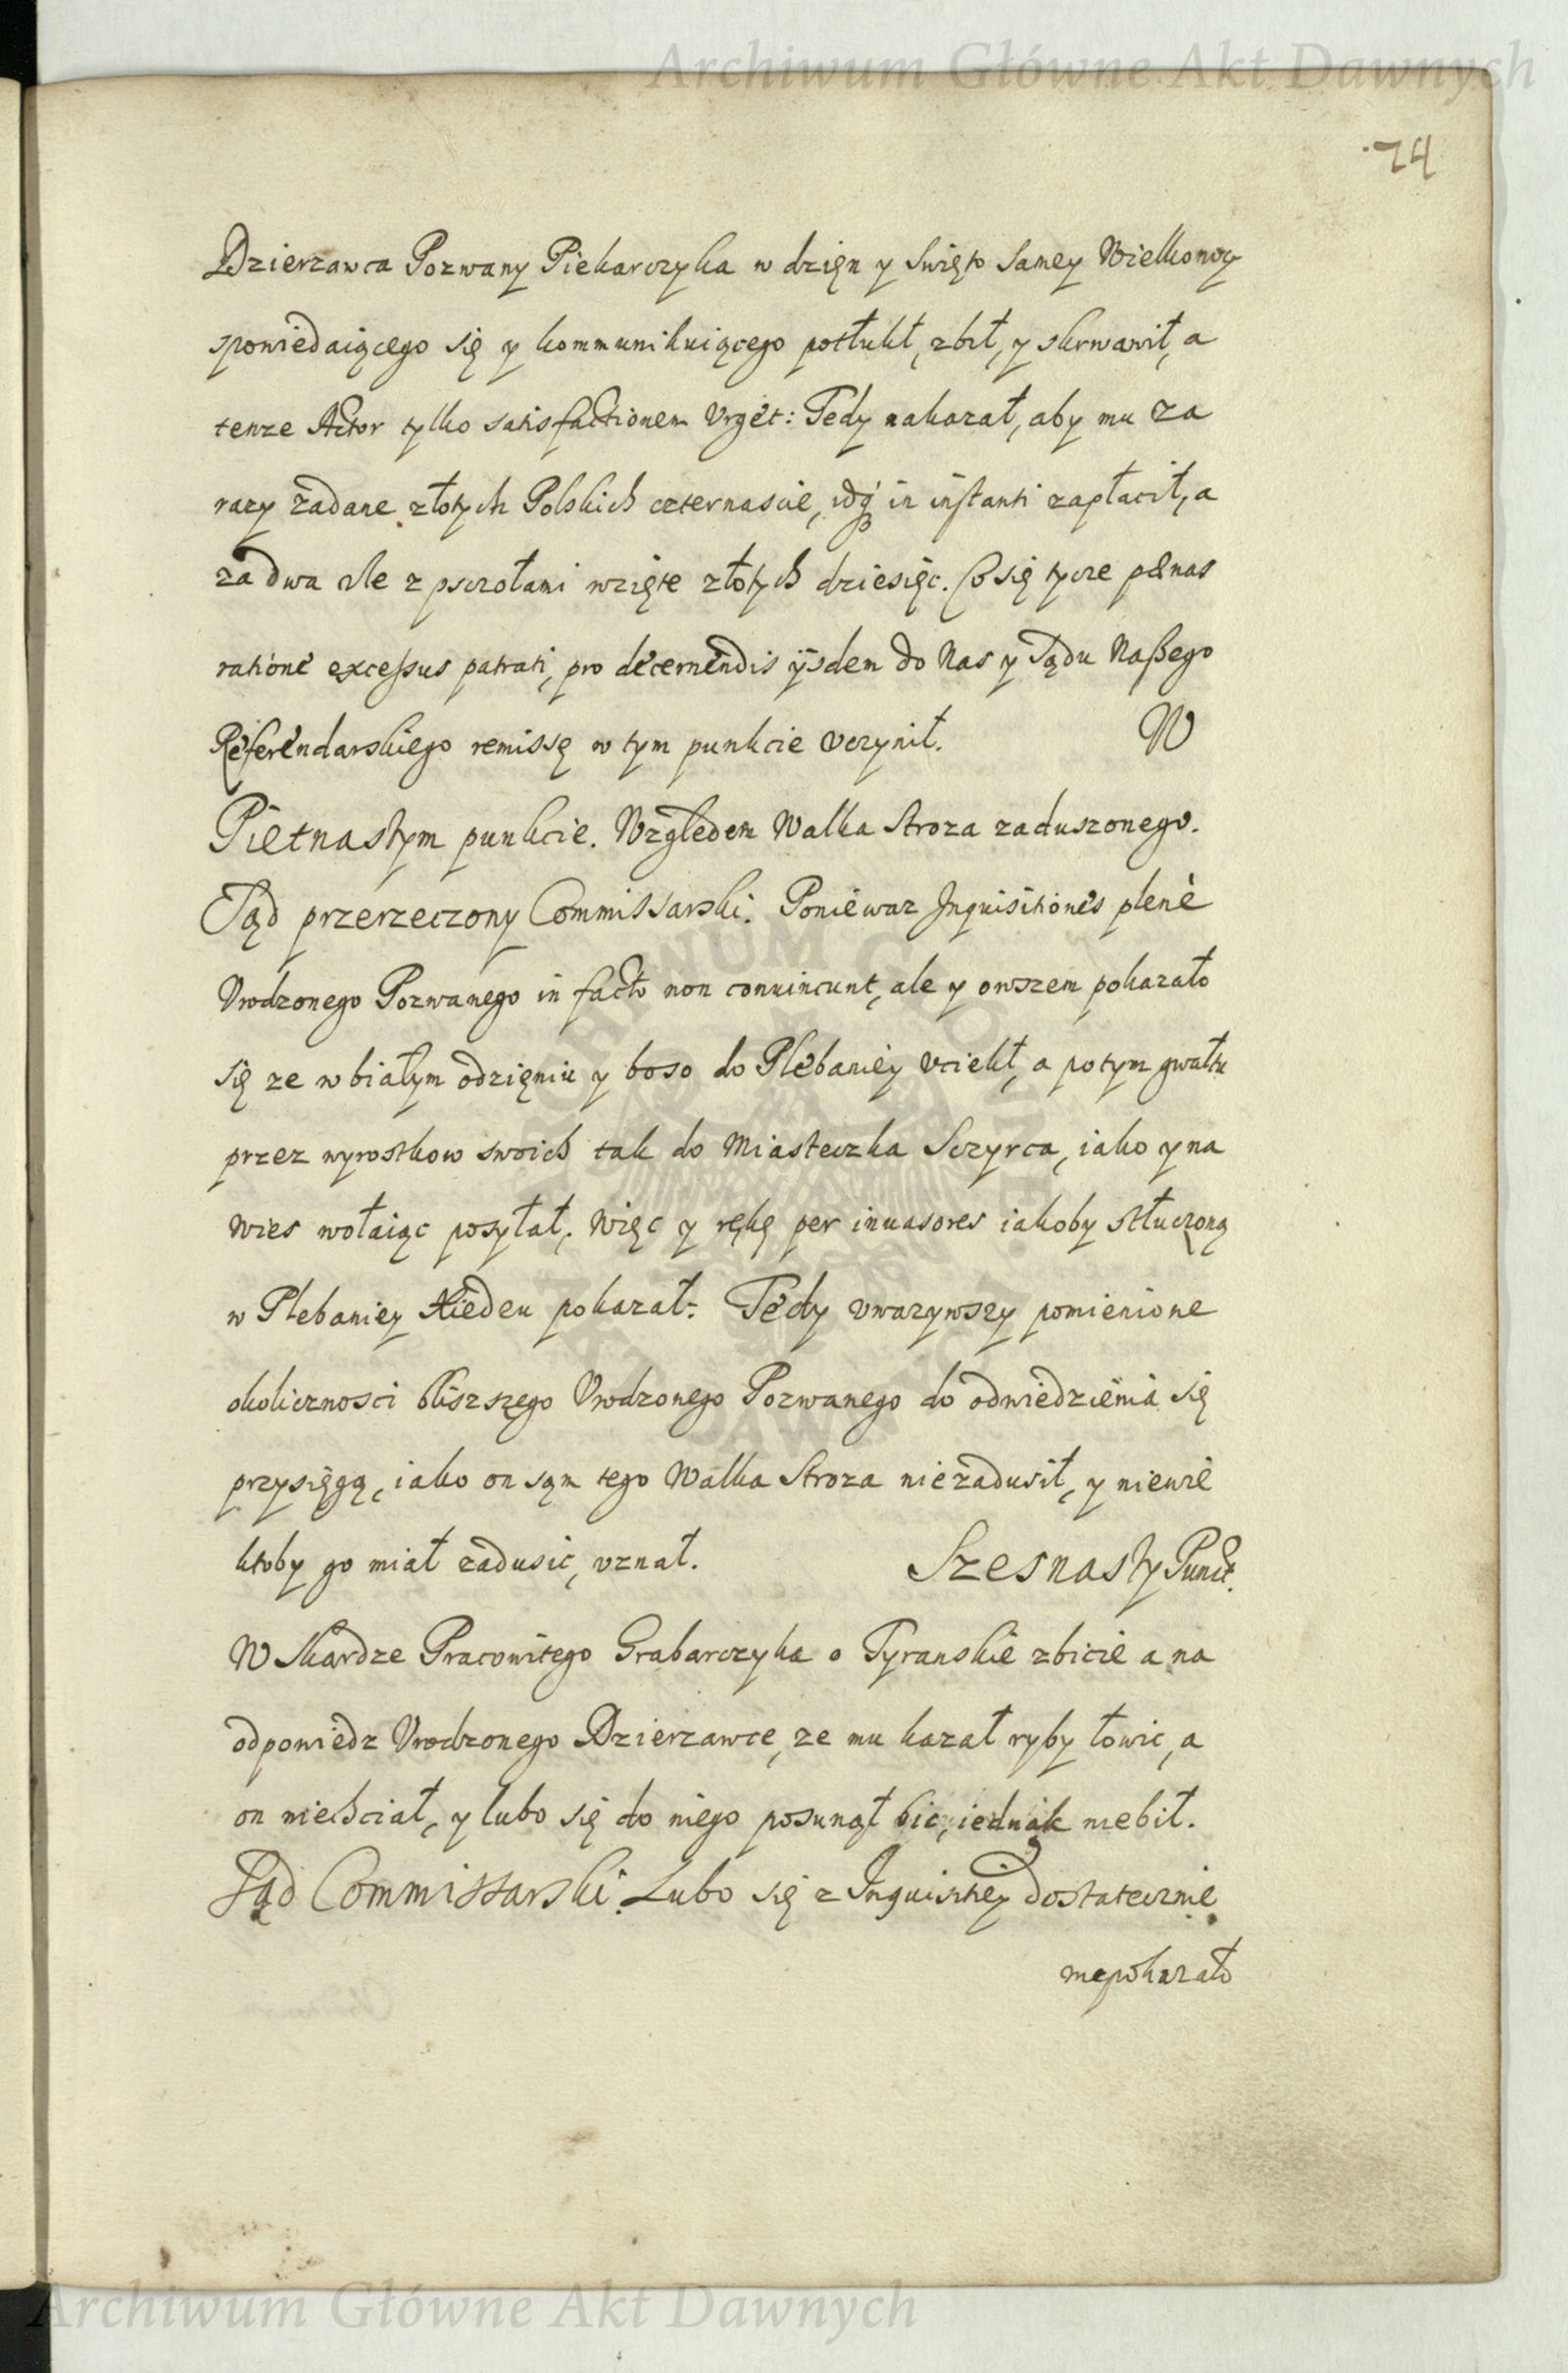 Archiwum Główne Akt Dawnych
74
Dzierzawca Pozwany Piekarczyka w dzięn y Swięto Samey Wielkonocy
spowiedaiącego się y kommunikuiącego potłukł, zbił, y skrwawił, a
tenze Actor tylko satisfactionem Urget: Tedy nakazał, aby mu za
razy zadane złotych Polskich czternascie, idq́ in instanti zapłacił, a
za dwa Ule z pszczołami wzięte złotych dziesięc. Co się tycze pænas
ratione excessus patrati, pro decernendis ijsdem do Nas y Sądu Naßego
Referendarskiego remissę w tym punkcie uczynił. W
Pietnastym punkcie. Względem Walka Stroza zaduszonego.
Sąd przerzeczony Commissarski. Poniewaz Inquisitiones plene
Urodzonego Pozwanego in facto non conuincunt, ale y owszem pokazało
się ze w białym odzięniu y boso do Plebaniey uciekł, a potym gwałtu
przez wyrostkow swoich tak do Miasteczka Sczyrca, iako y na
wies wołaiąc posyłał. Więc y rękę per inuasores iakoby stłuczoną
w Plebaniey Xiedzu pokazał: Tedy uwazywszy pomienione
okolicznosci bliszszego Urodzonego Pozwanego do odwiedzienia się
przysięgą, iako on sąm tego Walka Stroza niezadusił, y niewie
ktoby go miał zadusic, uznał. Szesnasty Punct.
W Skardze Pracowitego Grabarczyka o Tyranskie zbicie a na
odpowiedz Urodzonego Dzierzawce, ze mu kazał ryby łowic, a
on niechciał, y lubo się do niego posunął bic, iednąk niebił.
Sąd Commissarski. Lubo się z Inquisitiey dostatecznie
niepokazało
Archiwum Główne Akt Dawnych